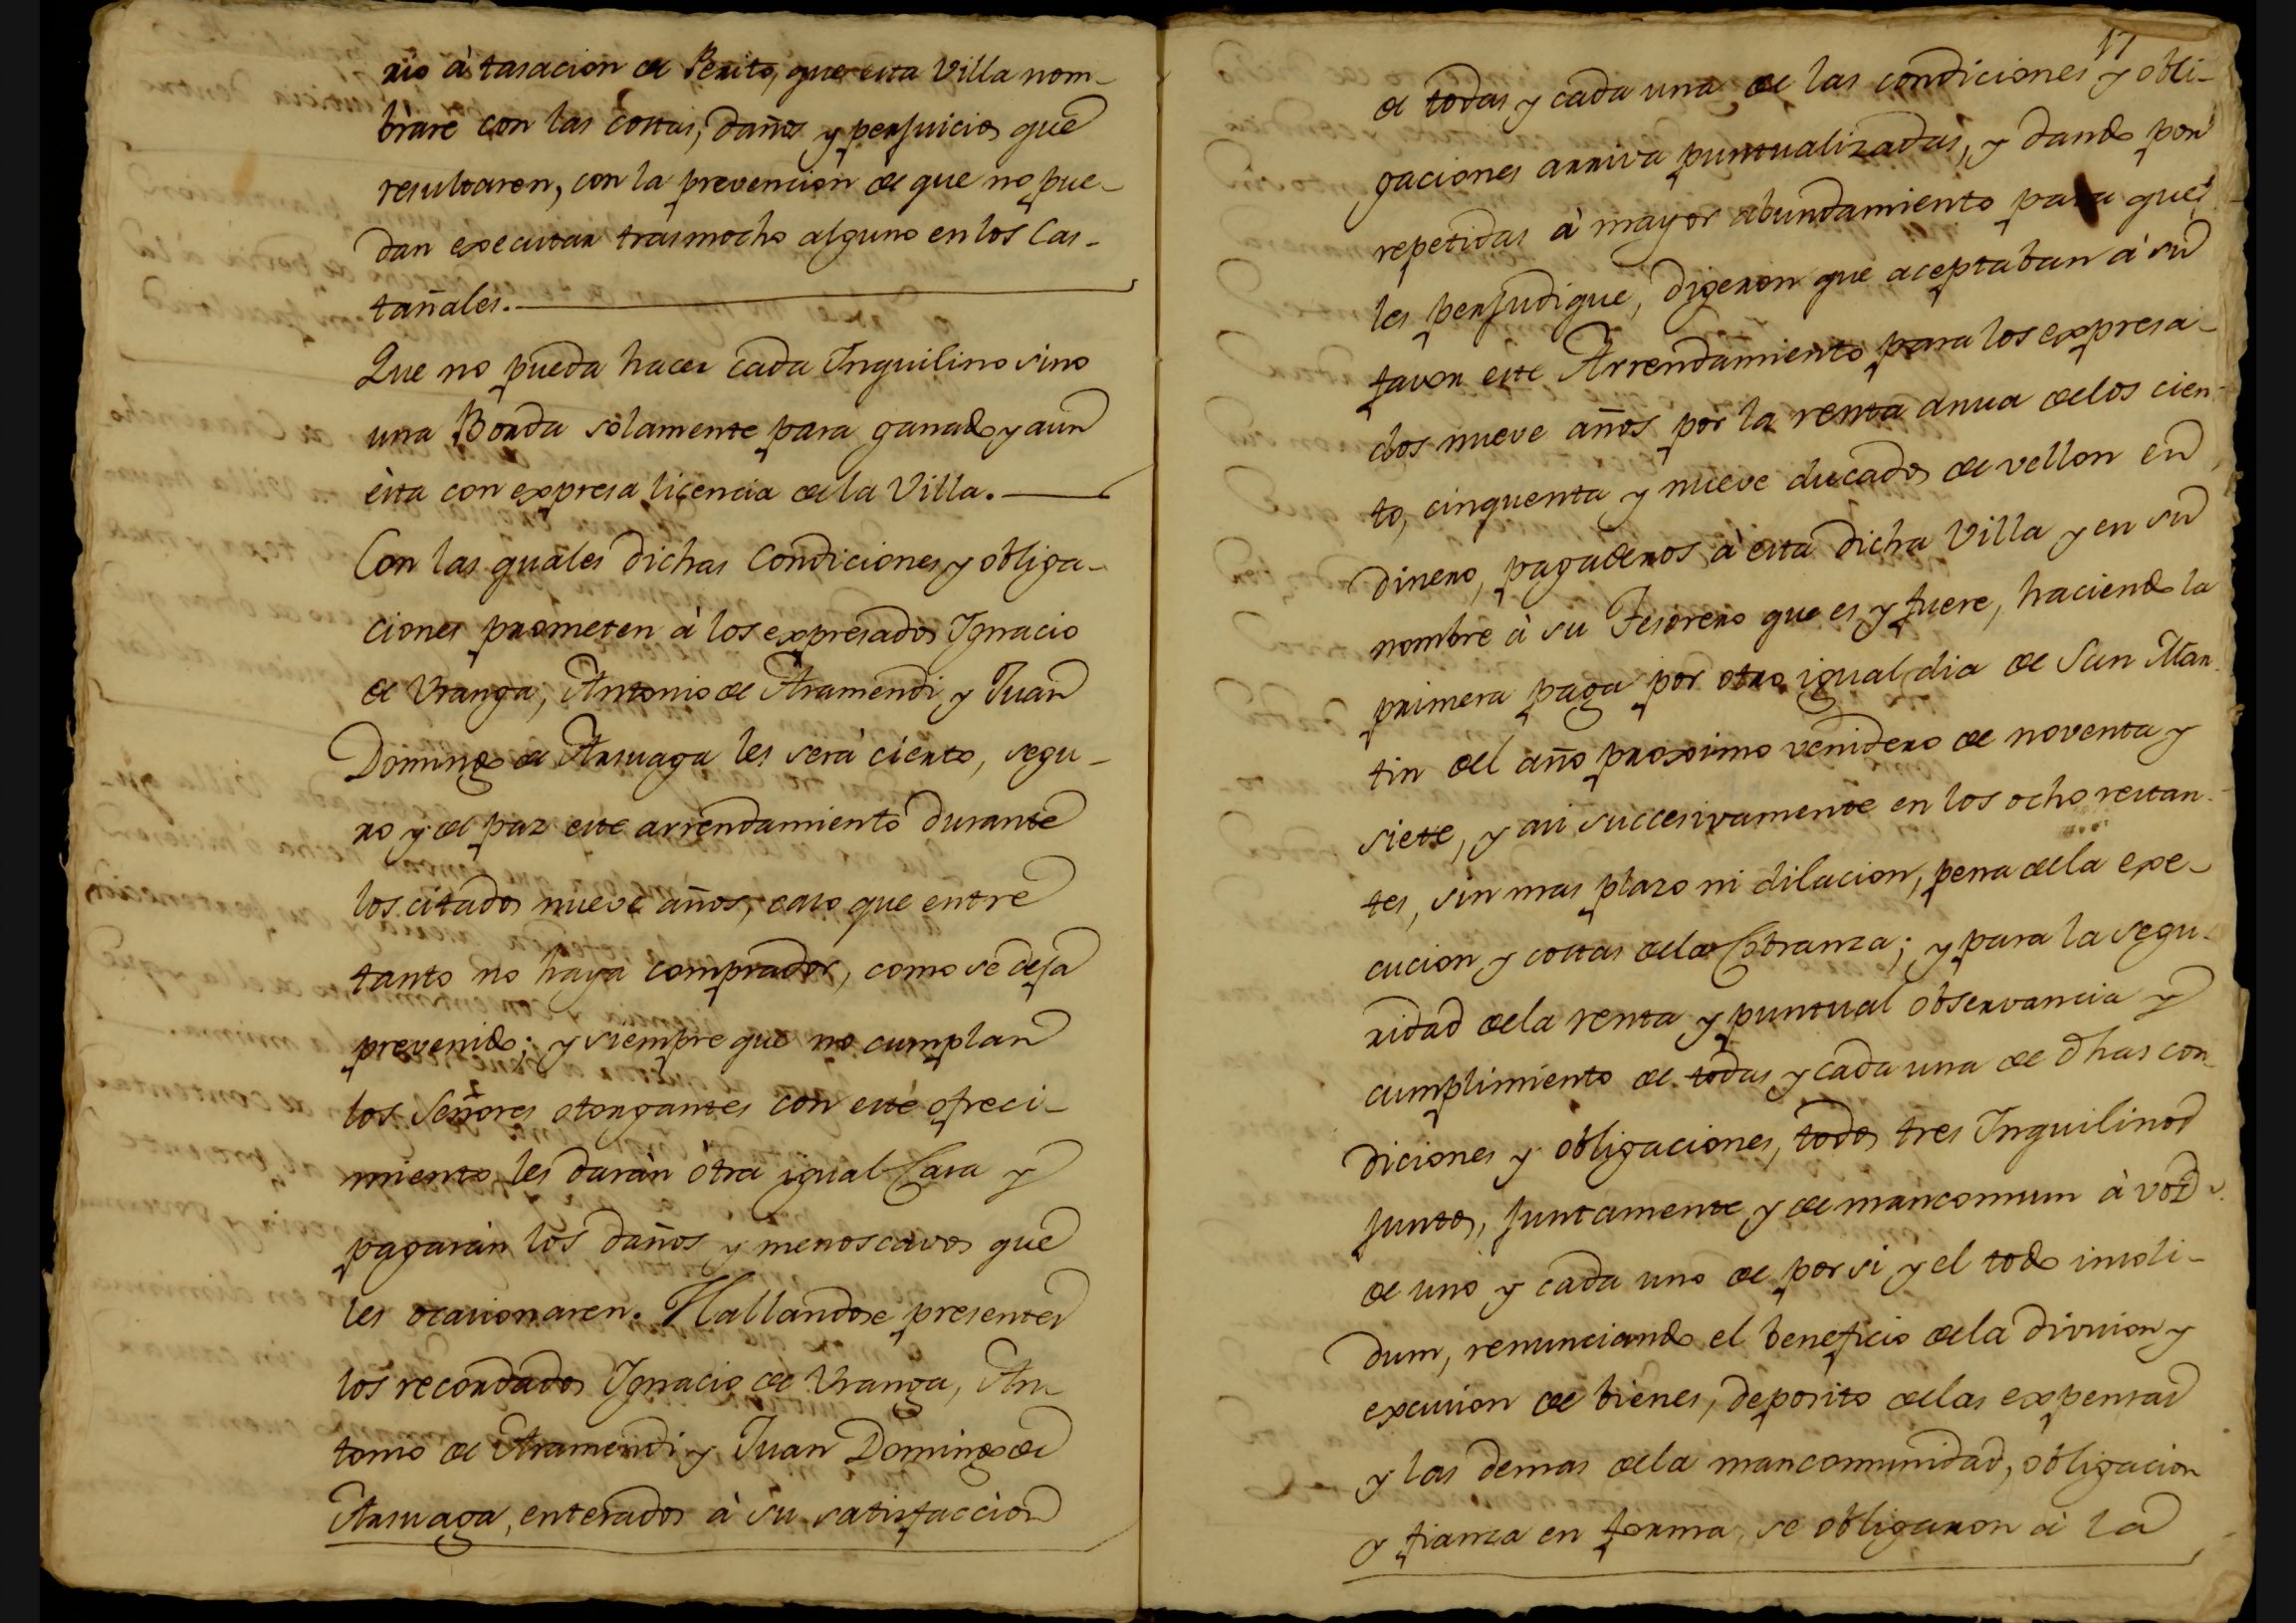 rio à tasacion de Perito, que esta Villa nom-
brare con las costas, daños y perjuicios que
resultaren, con la prevencion de que no pue-
dan executar trasmocho alguno en los Cas-
tañales.
Que no pueda hacer cada Inquilino sino
una Borda solamente para ganado y aun
èsta con expresa licencia de la Villa.
Con las quales dichas Condiciones y obliga-
ciones prometen à los expresados Ignacio
de Uranga, Antonio de Aramendi, y Juan
Domingo de Arsuaga les serà cierto, segu-
ro y de paz este arrendamiento durante
los citados nueve años, caso que entre
tanto no haya comprador, como se deja
prevenido; y siempre que no cumplan
los Señores otorgantes con este ofreci-
miento les daràn otra igual Casa y
pagaràn los daños y menoscavos que
les ocasionaren. Hallandose presentes
los recordados Ignacio de Uranga, An-
tonio de Aramendi y Juan Domingo de
Arsuaga, enterados à su satisfaccion
17
de todas y cada una de las condiciones y obli-
gaciones arriva puntualizadas, y dando por
repetidas à mayor abundamiento para que
les perjudique, digeron que aceptaban à su
favor este Arrendamiento para los expresa-
dos nueve años por la renta anua de los cien-
to, cinquenta y nueve ducados de vellon en
dinero, pagaderos à esta dicha Villa y en su
nombre à su Tesorero que es y fuere, haciendo la
primera paga por otro igual dia de San Mar-
tin del año proximo venidero de noventa y
siete, y asi succesivamente en los ocho restan-
tes, sin mas plazo ni dilacion, pena de la exe-
cucion y costas de la Cobranza; y para la segu-
ridad de la renta y puntual observancia y
cumplimiento de todas y cada una de dhas con-
diciones y obligaciones, todos tres Inquilinos
juntos, juntamente y de mancomun à voz
de uno y cada uno de por si y el todo insoli-
dum, renunciando el beneficio de la division y
excusion de bienes, deposito de las expensas
y las demas de la mancomunidad, obligacion
y fianza en forma, se obligaron à la